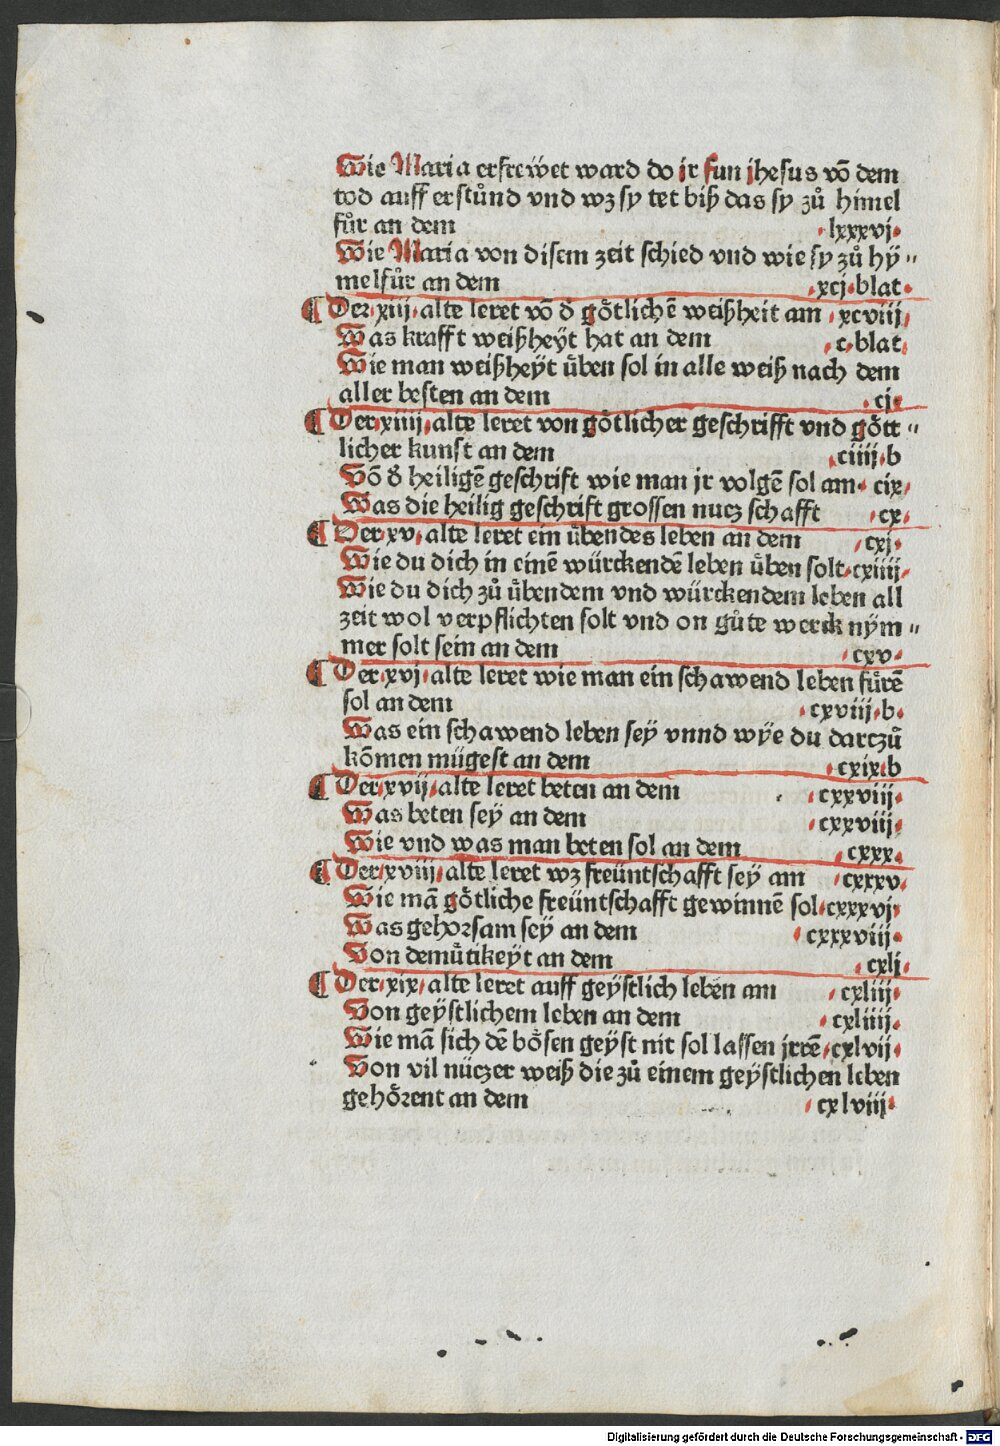 Wie Maria erfrewet ward do jr sun jhesus võ dem
tod auff erstůnd vnd wz sy tet biß das sy zů himel
fůr an dem .lxxxvj.
Wie Maria von disem zeit schied vnd wie sy zů hÿ⸗
melfůr an dem .xcj.blat.
¶ Der.xiij.alte leret võ ð gôtlichẽ weißheit am .xcviij.
Was krafft weißheÿt hat an dem .c.blat.
Wie man weißheÿt ůben sol in alle weiß nach dem
aller besten an dem .cj.
¶ Der.xiiij.alte leret von gôtlicher geschrifft vnd gôtt⸗
licher kunst an dem .ciiij.b
Võ ð heiligẽ geschrift wie man jr volgẽ sol am. cix.
Was die heilig geschrift grossen nucz schafft .cx.
¶ Der.xv.alte leret ein ůbendes leben an dem .cxj.
Wie du dich in einẽ würckendẽ leben ůben solt.cxiiij.
Wie du dich zů ůbendem vnd würckendem leben all
zeit wol verpflichten solt vnd on gůte werck nÿm⸗
mer solt sein an dem .cxv.
¶ Der.xvj.alte leret wie man ein schawend leben fůrẽ
sol an dem .cxviij.b.
Was ein schawend leben seÿ vnnd wÿe du darczů
kõmen mügest an dem .cxix.b
¶ Der.xvij.alte leret beten an dem .cxxviij.
Was beten seÿ an dem .cxxviij.
Wie vnd was man beten sol an dem .cxxx.
¶ Der.xviij.alte leret wz freüntschafft seÿ am .cxxxv.
Wie mã gôtliche freüntschafft gewinnẽ sol.cxxxvj.
Was gehorsam seÿ an dem .cxxxviij.
Von demůtikeÿt an dem .cxlj.
¶ Der.xix.alte leret auff geÿstlich leben am .cxliij.
Von geÿstlichem leben an dem .cxliiij.
Wie mã sich dẽ bôsen geÿst nit sol lassen jrrẽ.cxlvij.
Von vil nüczer weiß die zů einem geÿstlichen leben
gehôrent an dem .cxlviij.
Digitalisierung gefördert durch die Deutsche Forschungsgemeinschaft - DFG